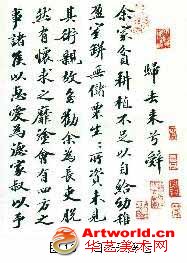 歸去來兮辭
余家貧耕植不足以自給幼稚
盈室缾無儲粟生〻所資未見
其術親故多勸余為長吏脫
然有懷求之靡途會有四方之
事諸侯以惠愛為德家叔以予
华艺美术网